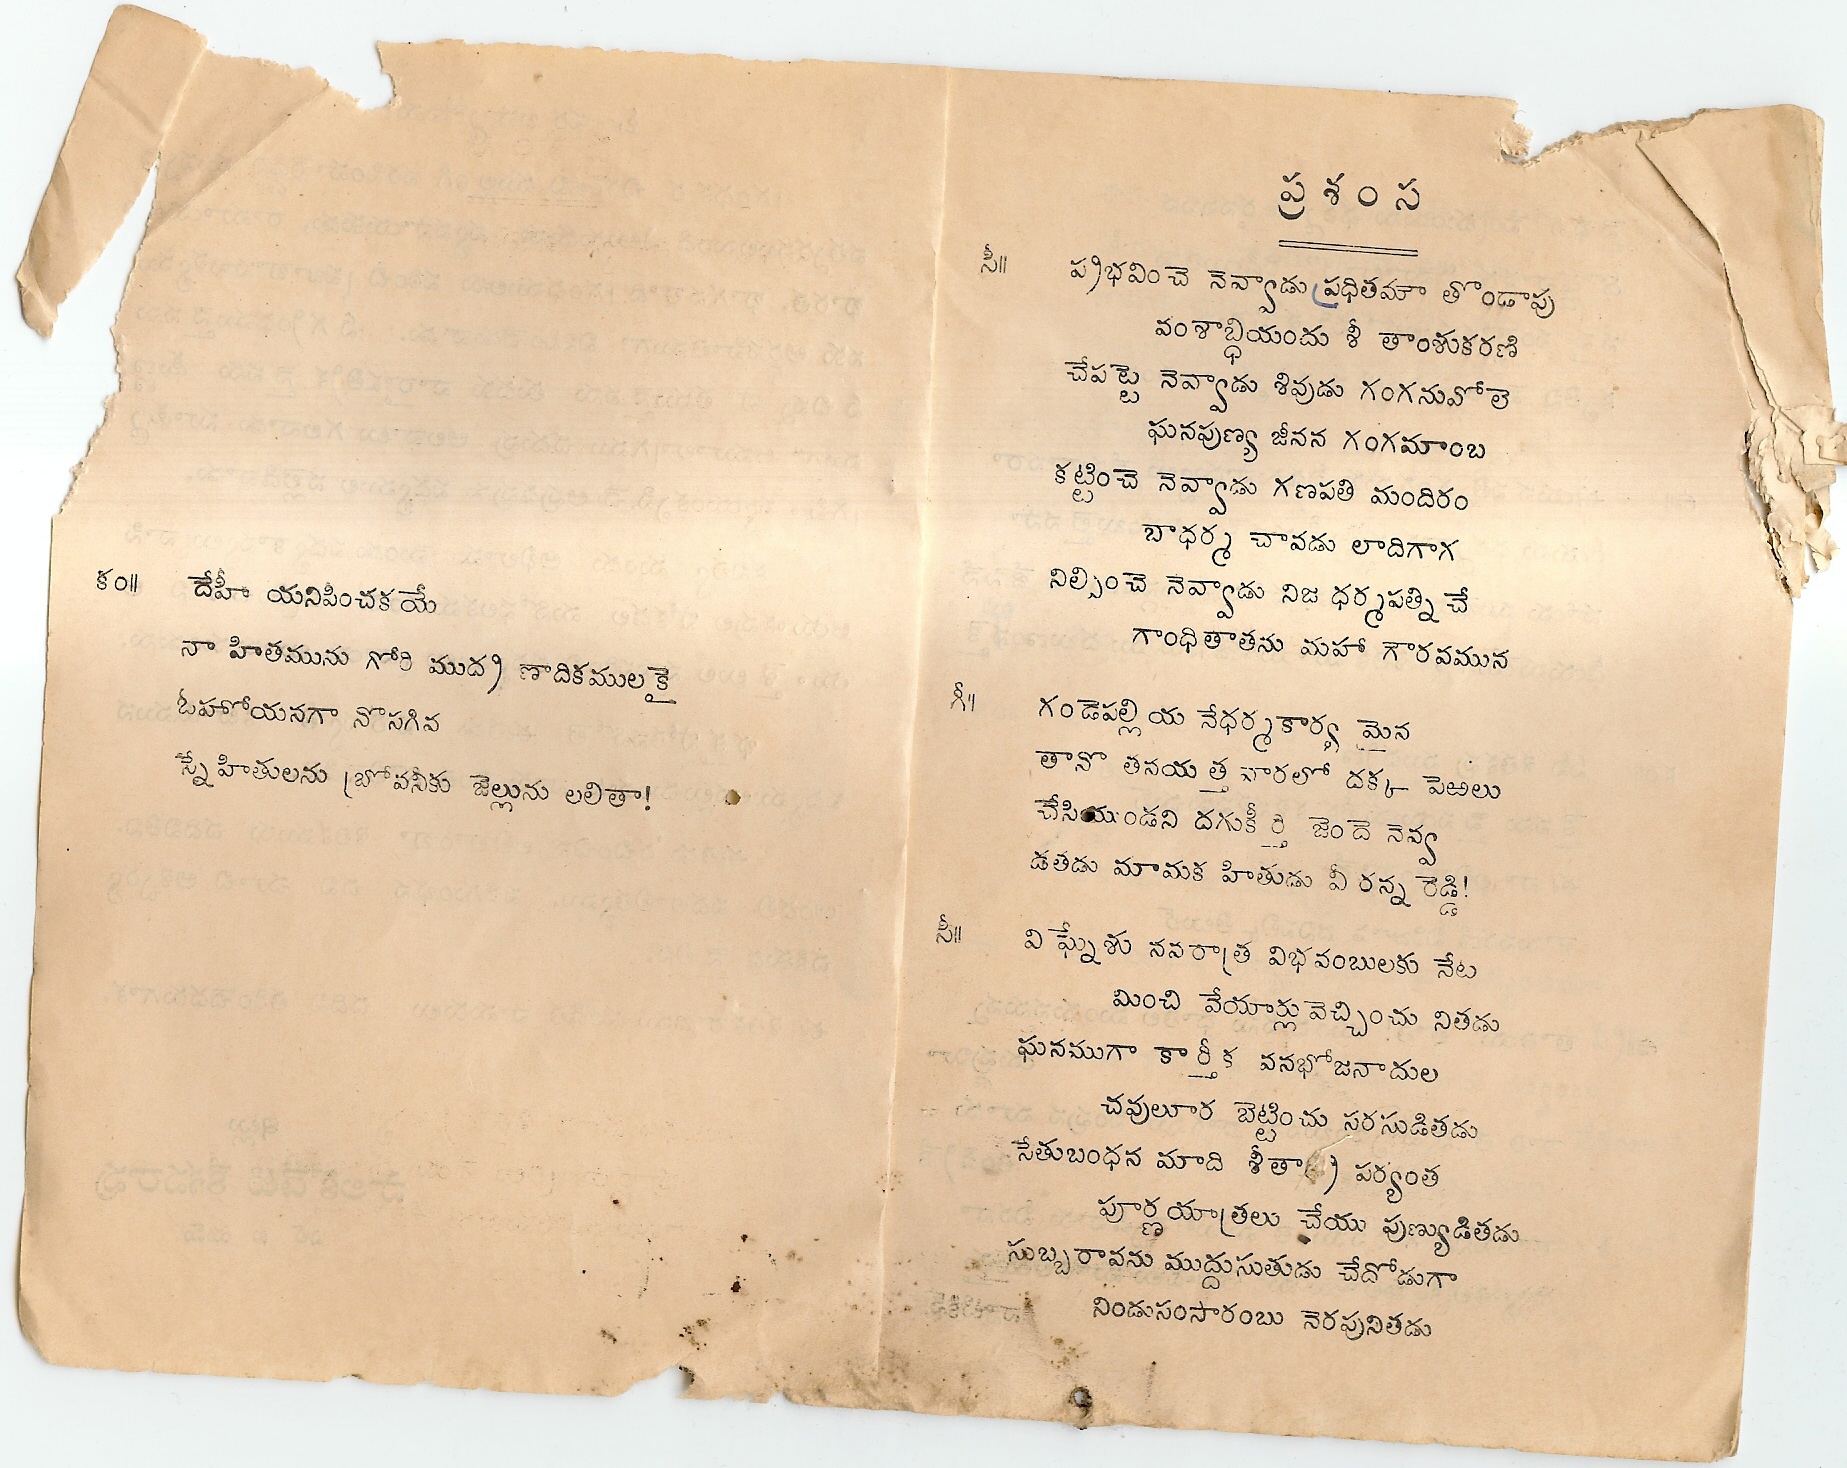 కం॥ దేహీ యనిపించకయే
నా హితమును గోరి ముద్ర ణాదికములకై
ఓహోయనగా నొసగివ
స్నేహితులను బ్రోవనీకు జెల్లును లలితా!
ప్రశంస
సీ॥ ప్రభవించె నెవ్వాడు ప్రధితమౌ తొండాపు
వంశాబ్ధియందు శీ తాంశుకరణి
చేపట్టె నెవ్వాడు శివుడు గంగనువోలె
ఘనపుణ్య జీనన గంగమాంబ
కట్టించె నెవ్వాడు గణపతి మందిరం
బాధర్మ చావడు లాదిగాగ
నిల్పించె నెవ్వాడు నిజ ధర్మపత్ని చే
గాంధితాతను మహా గౌరవమున
గీ॥ గండెపల్లియ నేధర్మకార్య మైన
తానొ తనయ త్త వారలో దక్క పెఱలు
చేసియుండని దగుకీ ర్తి జెందె నెవ్వ
డతడు మామక హితుడు వీ రన్న రెడ్డి!
సీ॥ వి ఘ్నేశు నవరాత్ర విభవంబులకు నేట
మించి వేయార్లు వెచ్చించు నితడు
ఘనముగా కా ర్తీక వనభోజనాదుల
చవులూర బెట్టించు సరసుడితడు
సేతుబంధన మాది శీతాద్రి పర్యంత
పూర్ణయాత్రలు చేయు పుణ్యుడితడు
సుబ్బరావను ముద్దుసుతుడు చేదోడుగా
నిండుసంసారంబు నెరపునితడు